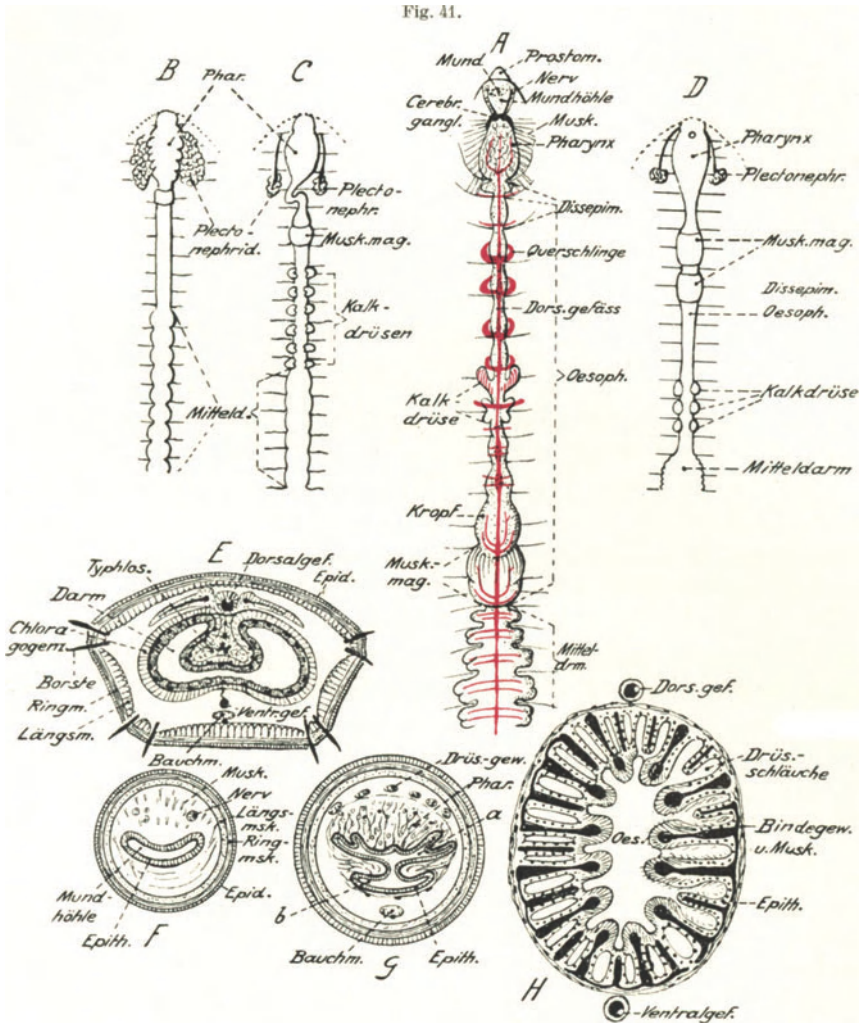 Fig. 41.
B
Phar.
C
Plecto-
nephr.
Plecto-
nephrid.
Musk.mag.
Kalk-
drüsen
Mitteld.
A
Mund
Prostom.
Nerv
Mundhöhle
Cerebr.
gangl.
Musk.
Pharynx
Dissepim.
Querschlinge
Dors.gefäss
Oesoph.
Kalk
drüse
Kropf
Musk.-
mag.
Mittel-
drm.
D
Pharynx
Plectonephr.
Musk.mag.
Dissepim.
Oesoph.
Kalkdrüse
Mitteldarm
E
Typhlos.
Dorsalgef.
Epid.
Darm
Chlora
gogem.
Borste
Ringm.
Längsm.
Ventr.gef.
Bauchm.
Musk.
Nerv
Längs-
msk.
Ring-
msk.
Epid.
Mund-
höhle
Epith.
F
Drüs.-gew.
Phar.
a
b
Bauchm.
G
Epith.
Dors.gef.
Drüs.-
schläuche
Oes.
Bindegew.
u.Musk.
Epith.
H
Ventralgef.